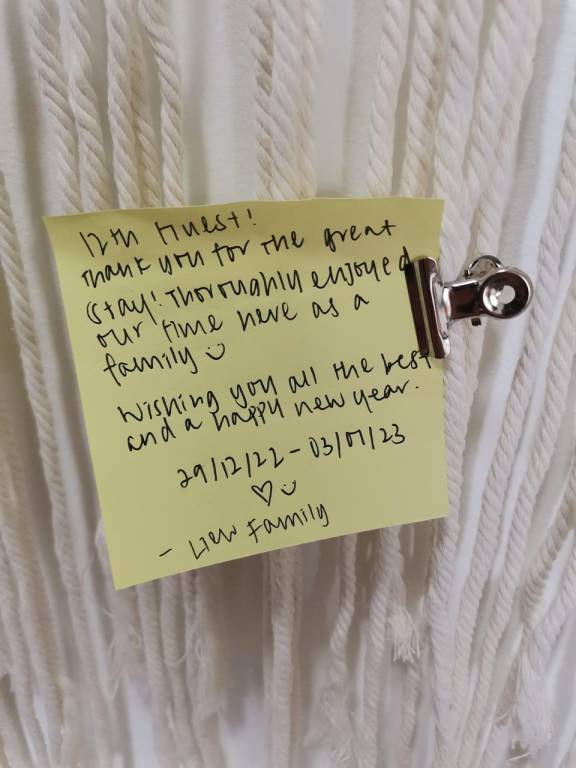 12th Guest!
Thank you for the great
stay! Thoroughly enjoyed
our time here as a
family
Wishing you all the best
and a happy new year.
29/12/22 - 03/01/23
- Liew Family